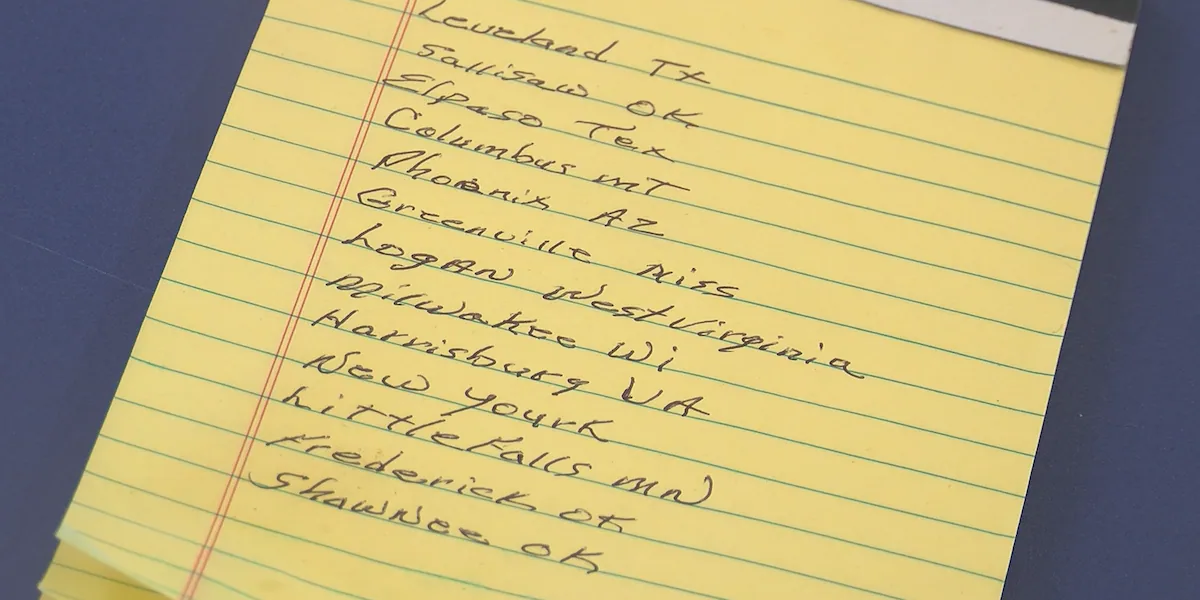 Leveland Tx
Sallisaw OK
Elpaso Tex
Columbus MT
Phoenix AZ
Greenville Miss
Logan West Virginia
Milwakee Wi
Harrisburg VA
New yourk
Little Falls MN
Frederick OK
Shawnee OK